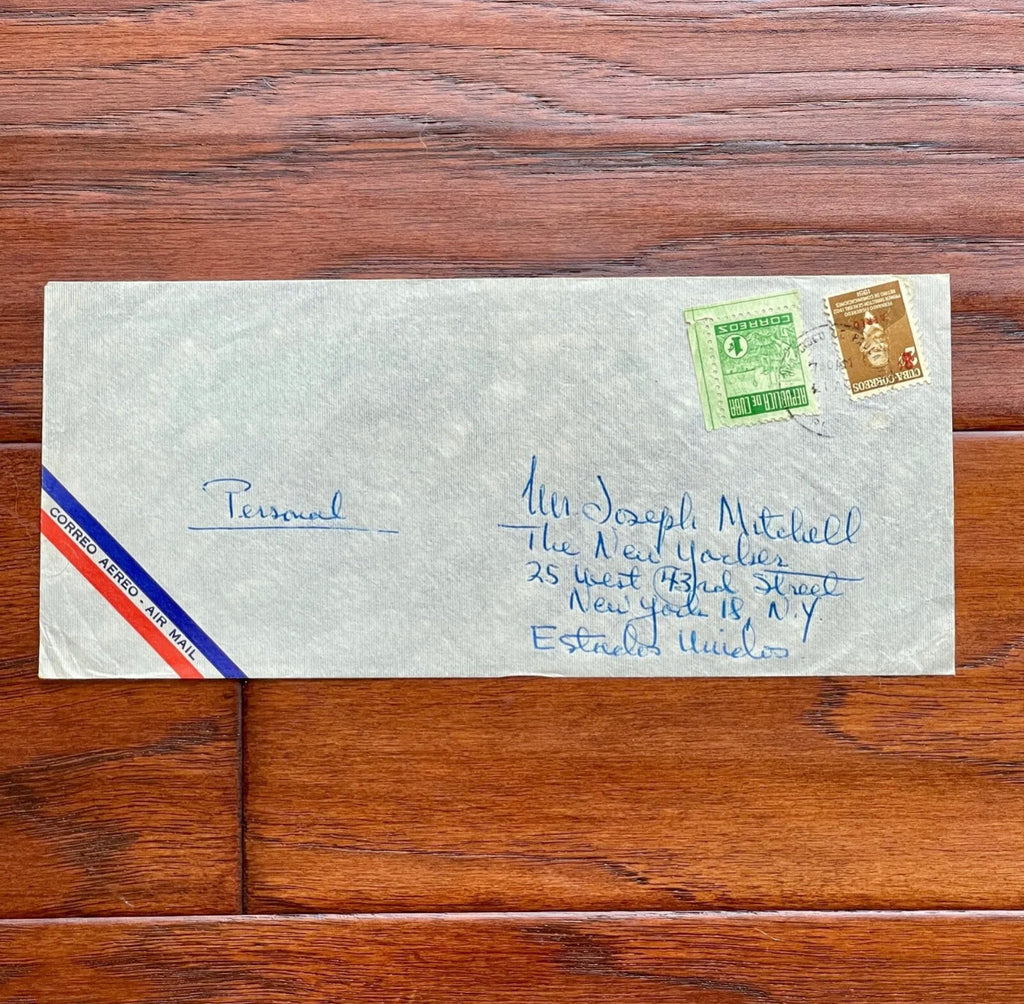 REPUBLICA DE CUBA
CORREOS
1
CUBA-CORREOS
2
1951
Personal
Mr Joseph Mitchell
The New Yorker
25 West 43rd Street
New York 18, N.Y.
Estados Unidos
CORREO AEREO - AIR MAIL